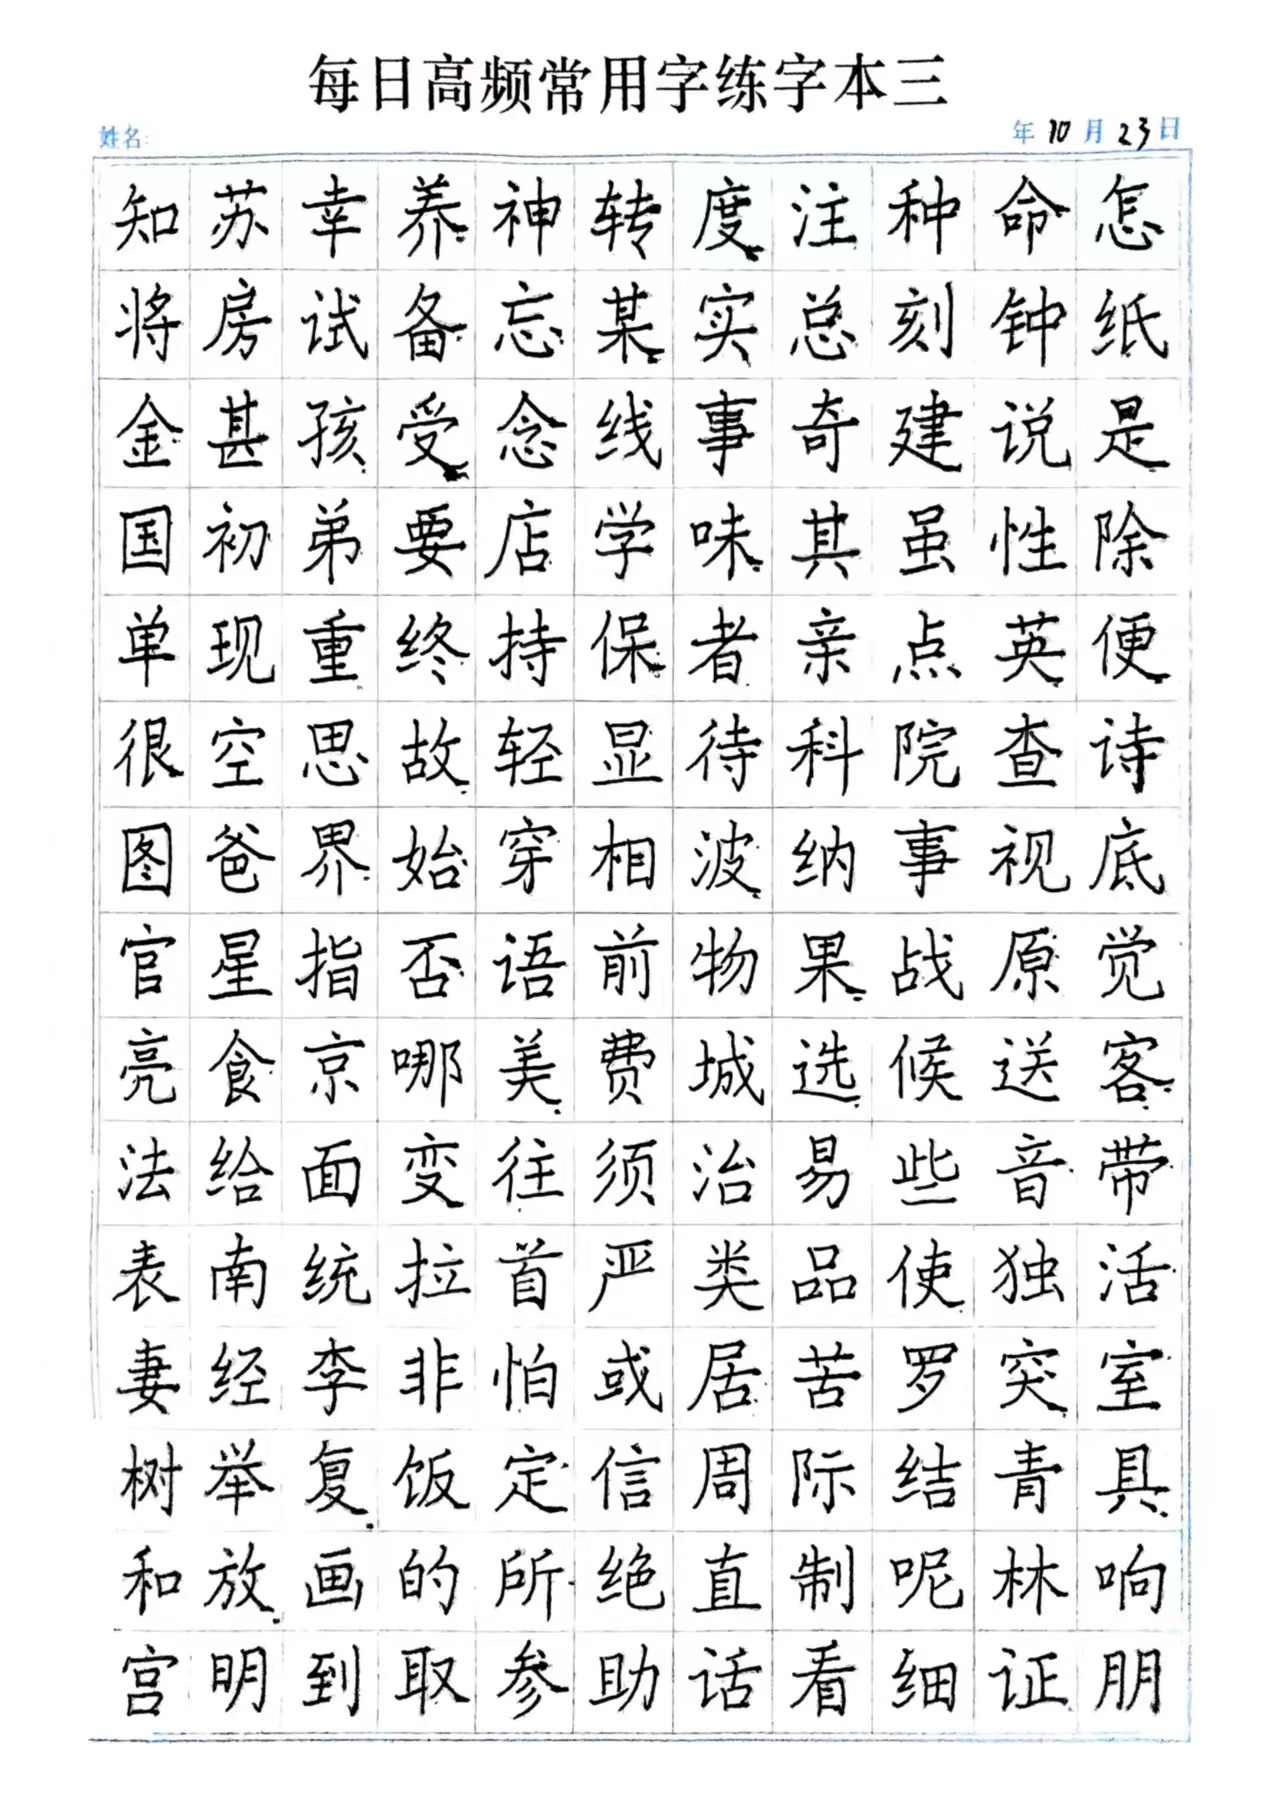 每日高频常用字练字本三
姓名: 年 10 月 23 日
知苏幸养神转度注种命怎
将房试备忘某实总刻钟纸
金甚孩受念线事奇建说是
国初弟要店学味其虽性除
单现重终持保者亲点英便
很空思故轻显待科院查诗
图爸界始穿相波纳事视底
官星指否语前物果战原觉
亮食京哪美费城选候送客
法给面变往须治易些音带
表南统拉首严类品使独活
妻经李非怕或居苦罗突室
树举复饭定信周际结青具
和放画的所绝直制呢林响
宫明到取参助话看细证朋